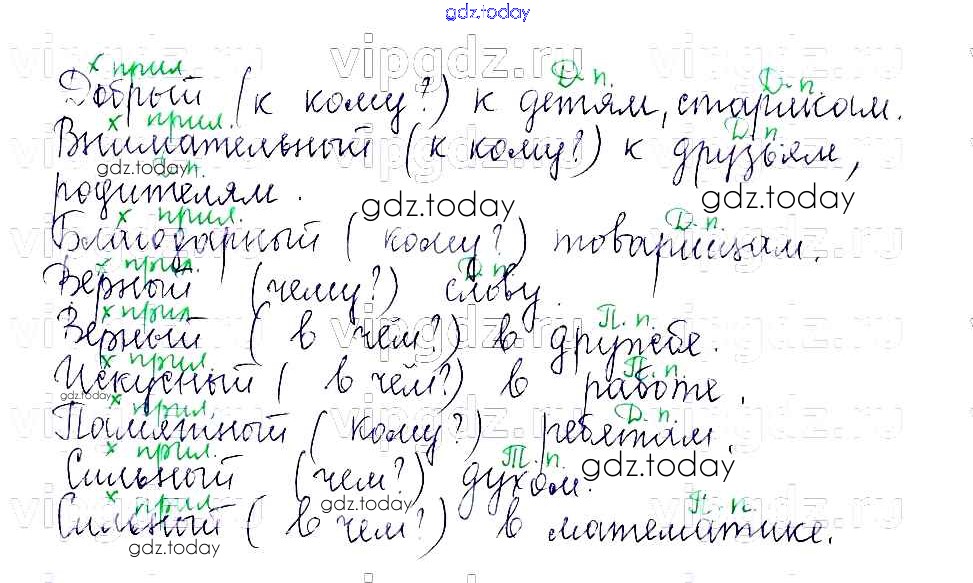 gdz.today
vipgdz.ru vipgdz.ru vipgdz.ru
х прил. Д. п. Д. п.
Добрый (к кому?) к детям, старикам.
х прил. Д. п.
Внимательный (к кому?) к друзьям,
gdz.today Д. п. gdz.today
родителям. gdz.today
х прил. Д. п.
Благодарный (кому?) товарищам.
х прил. Д. п.
Верный (чему?) слову.
х прил. П. п.
Верный (в чём?) в дружбе.
х прил. П. п.
Искусный (в чём?) в работе.
gdz.today
х прил. Д. п.
Памятный (кому?) ребятам.
х прил. Т. п.
Сильный (чем?) духом.
gdz.today gdz.today
х прил. П. п.
Сильный (в чем?) в математике.
gdz.today gdz.today